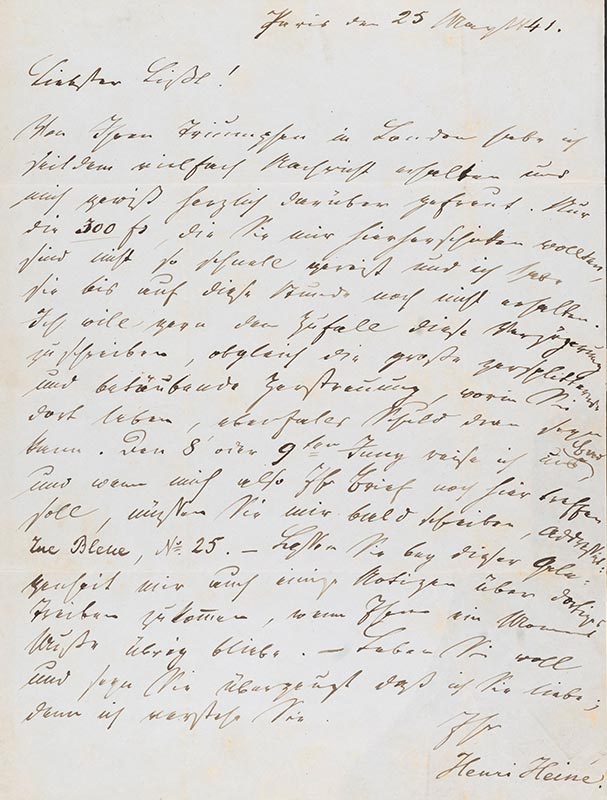 Paris den 25 May 1841.
Liebster Lißt!
Von Ihren Triumphen in London habe ich
seitdem vielfach Nachricht erhalten und
mich gewiß herzlich darüber gefreut. Nur
die 300 fs, die Sie mir hierherschicken wollten,
sind nicht so schnell gereist und ich habe
sie bis auf diese Stunde noch nicht erhalten.
Ich will gern dem Zufall diese Verzögerung
zuschreiben, obgleich die große zersplitternde
und betäubende Zerstreuung, worin Sie
dort leben, ebenfalls Schuld dran seyn
kann. Den 8 oder 9ten Juny reise ich
und wenn mich also Ihr Brief noch hier treffen
soll, müssen Sie mir bald schreiben, Addresse:
rue Bleue, No 25. – Lassen Sie bey dieser Gele-
genheit mir auch einige Notizen über dortiges
Treiben zukommen, wenn Ihnen ein Moment
Muße übrig bliebe. – Leben Sie woll
und seyn Sie überzeugt daß ich Sie liebe;
denn ich verstehe Sie.
Ihr
Henri Heine.